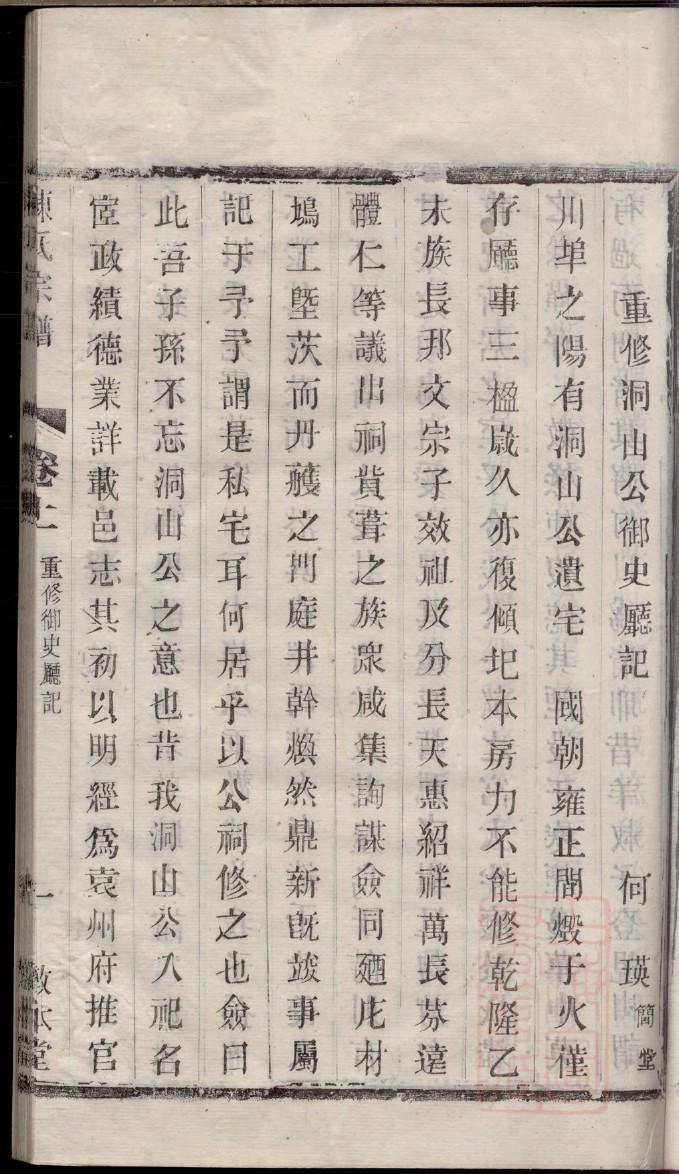 重修洞山公御史廳記 何瑛簡堂
川埠之陽有洞山公遺宅 國朝雍正間燬于火僅
存廳事三楹歲久亦復傾圮本房力不能修乾隆乙
未族長邦文宗子效祖及分長天惠紹祥萬長芬遠
體仁等議出祠貲葺之族眾咸集詢謀僉同廼庀材
鳩工塈茨而丹雘之門庭井幹煥然鼎新既竣事屬
記于予予謂是私宅耳何居乎以公祠修之也僉曰
此吾子孫不忘洞山公之意也昔我洞山公入祀名
宦政績德業詳載邑志其初以明經為袁州府推官
氏宗譜 卷 重修御史廳記 一 本堂